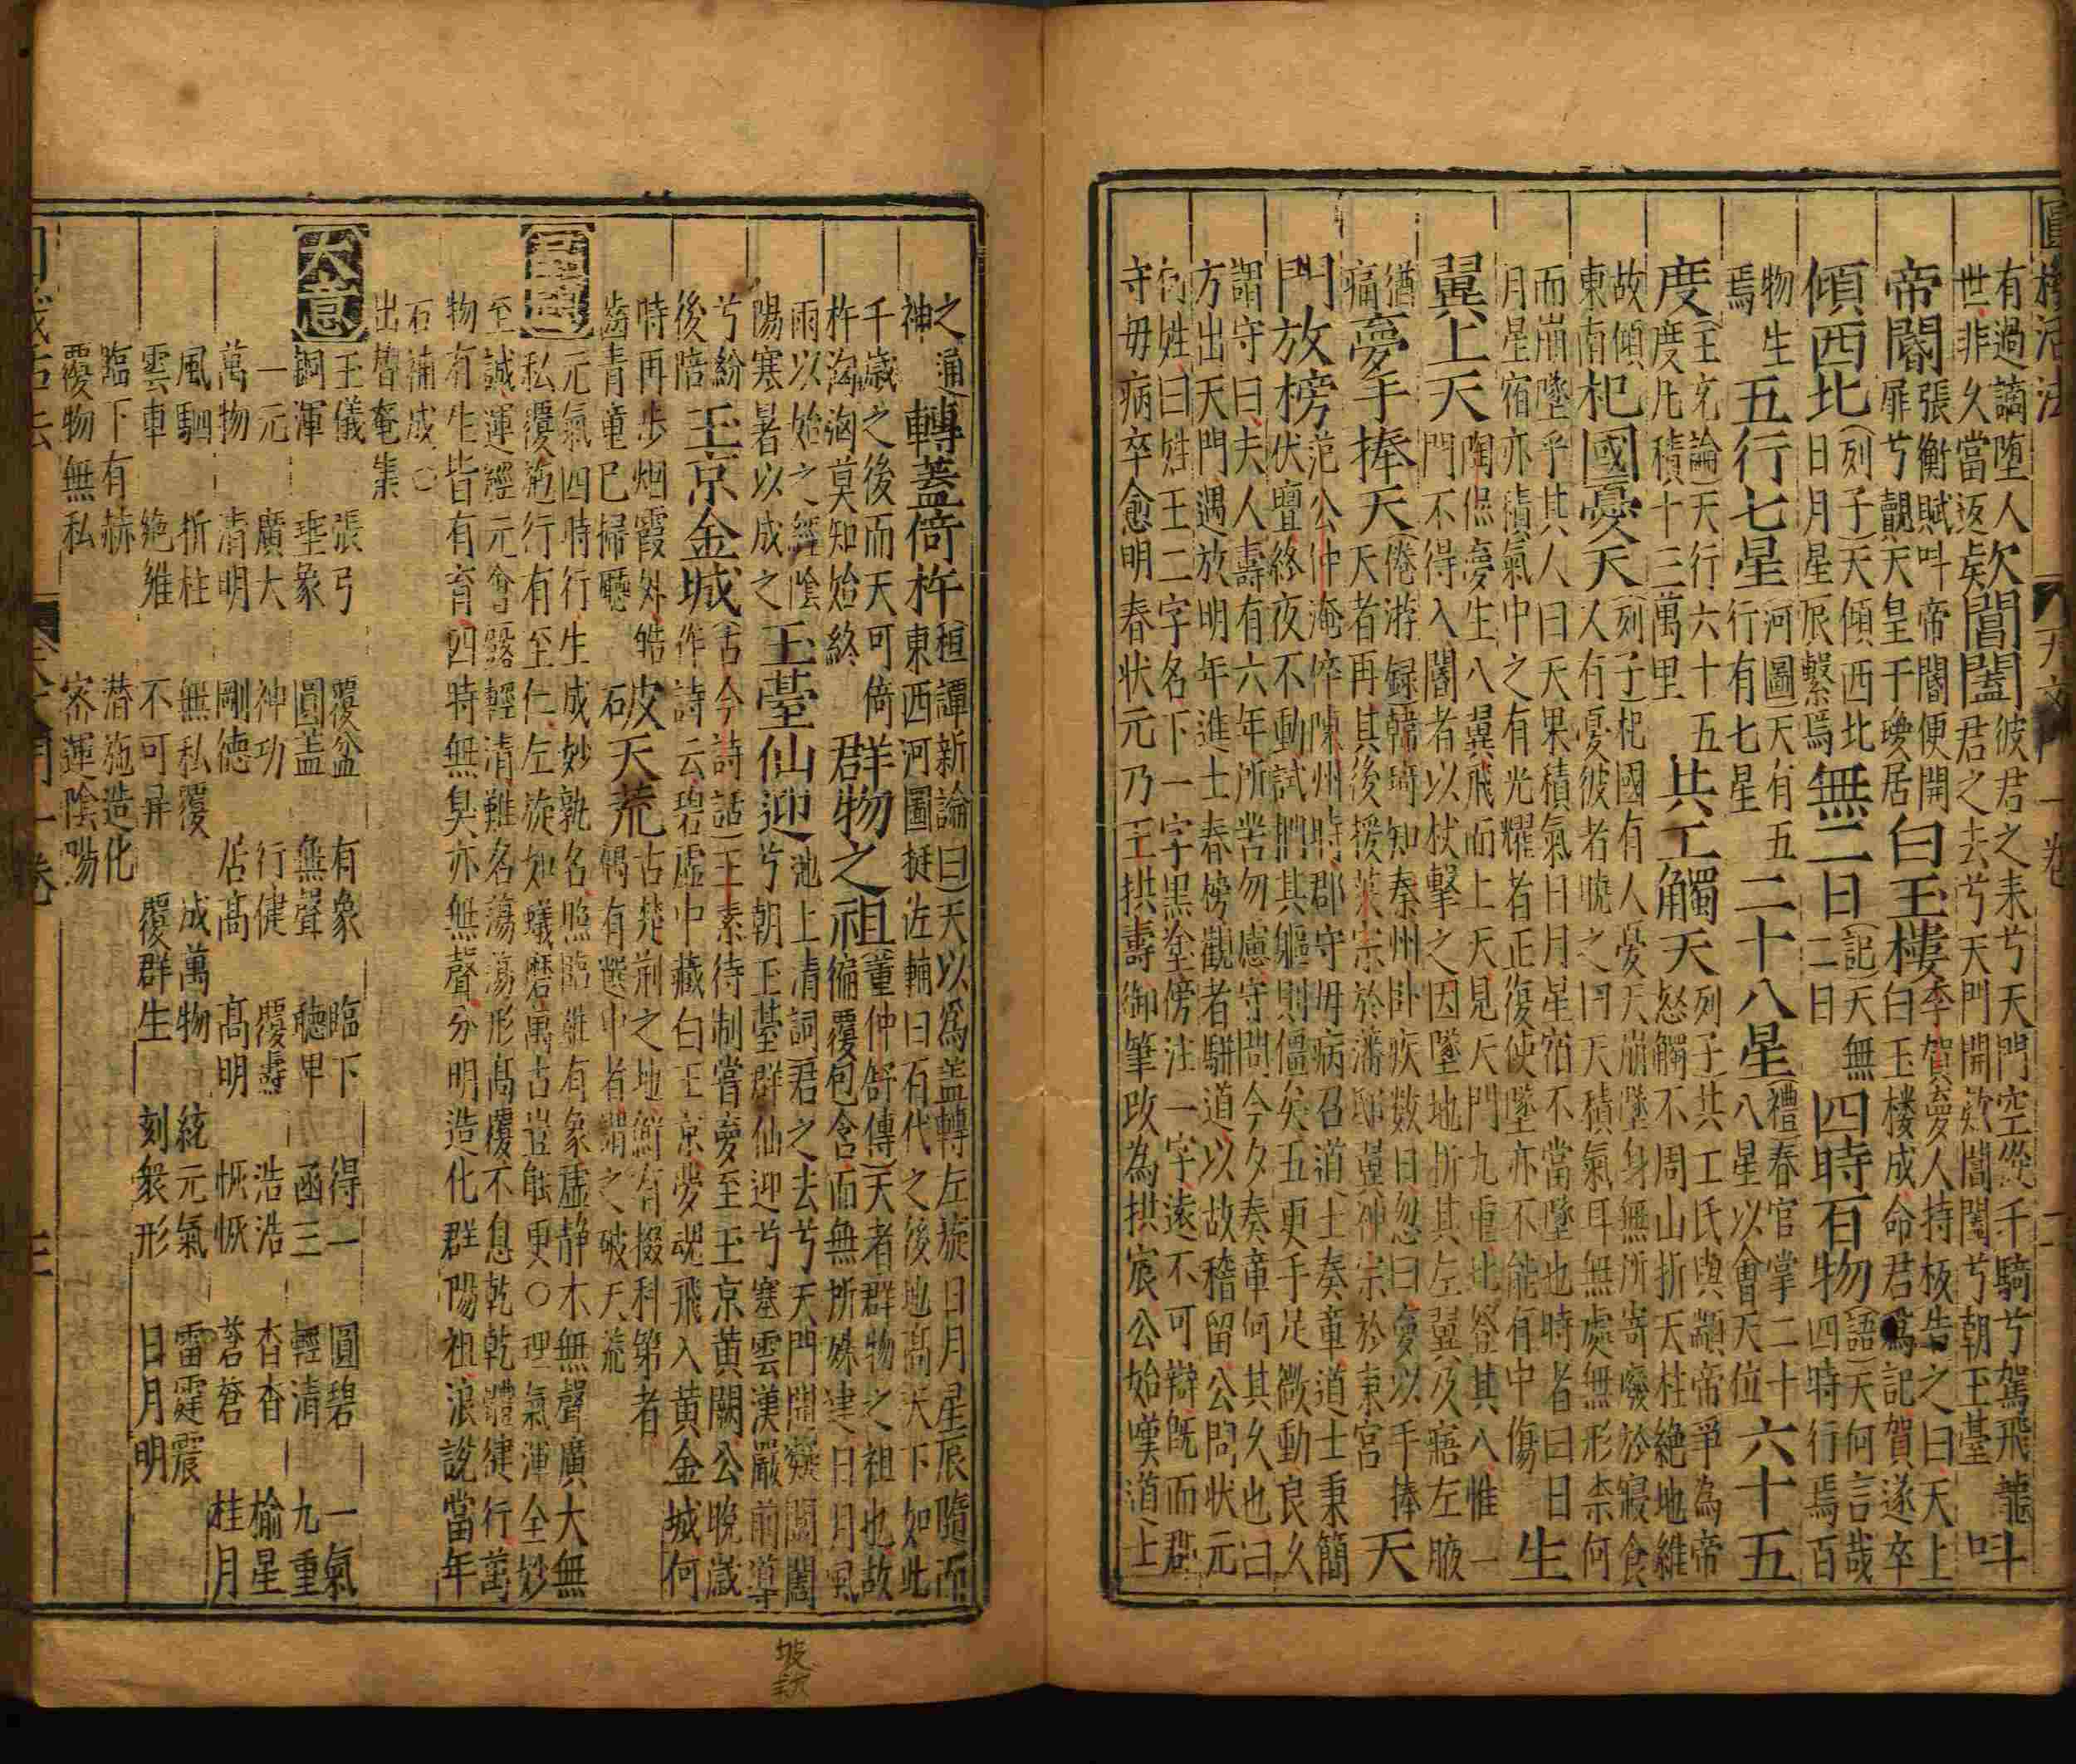 有過謫堕人欤閶闔彼君之来兮天門空從千騎兮駕飛龍叫
世非久當返 君之去兮天門開欻閶闔兮朝玉臺
帝閽張衡賦叫帝閽便開白玉樓李賀夢人持板告之曰天上
扉兮覿天皇于瓊居 白玉楼成命君為記賀遂卒
傾西北(列子)天傾西北無二日(記)天無四時百物(語)天何言哉
日月星辰繫焉 二日 四時行焉百
物生五行七星(河圖)天有五二十八星(禮)春官掌二十六十五
焉 行有七星 八星以會天位
度(王充論)天行六十五共工觸天列子共工氏與顓帝爭為帝
度凡積十三萬里 怒觸不周山折天柱絶地維
故傾杞國憂天(列子)杞國有人憂天崩墜身無所寄廢於寢食
東南 人有憂彼者曉之曰天積氣耳無處無形柰何
而崩墜乎其人曰天果積氣日月星宿不當墜也時者曰日生
月星宿亦積氣中之有光耀者正復使墜亦不能有中傷
翼上天陶侃夢生八翼飛而上天見天門九重比登其八惟一
門不得入閽者以杖擊之因墜地折其左翼及寤左腋
猶夢手捧天(倦游録)韓琦知秦州卧疾数日忽曰夢以手捧天
痛 天者再其後援英宗於藩邸暨神宗於東宮
門放榜范公仲淹倅陳州時郡守母病召道士奏章道士秉簡
伏壇終夜不動試捫其軀則僵矣五更手足微動良久
謂守曰夫人壽有六年所苦勿慮守問今夕奏章何其久也曰
方出天門遇放明年進士春榜觀者駢道以故稽留公問状元
何姓曰姓王二字名下一字黒塗傍注一字遠不可辯既而郡
守毋病卒愈明春状元乃王拱壽御筆改為拱宸公始嘆道士
之通轉蓋倚杵(桓譚新論曰)天以爲蓋轉左旋日月星辰隨而
神 東西河圖挺佐輔曰百代之後地高天下如此
千歲之後而天可倚群物之祖(董仲舒傳)天者群物之祖也故
杵洶洶莫知始終 徧覆包含而無所殊建日月風
雨以始之經陰玉臺仙迎池上清詞君之去兮天門開欻閶闔
陽寒暑以成之 兮朝玉臺群仙迎兮塞雲漢嚴前導
兮紛玉京金城(古今詩話)王素待制嘗夢至玉京黃闕公晩歲
後陪 作詩云碧虛中藏白玉京夢魂飛入黃金城何
時再歩烟霞外皓破天荒古楚荊之地鮮有掇科第者
齒青童已掃廳 石碣有選中者謂之破天荒
元氣四時行生成妙孰名照臨雖有象虛静本無聲廣大無
私覆施行有至仁左旋如蟻磨萬古豈能更○理氣渾全妙
至誠運經元會露輕清難名蕩蕩形高覆不息乾乾體健行萬
物有生皆有育四時無臭亦無聲分明造化群陽祖浪說當年
石補成○
出瞽奄集
大意
玉儀 張弓 覆盆 有象 臨下 得一 圓碧 一氣
銅渾 垂象 圓盖 無聲 聽卑 函三 輕清 九重
一元 廣大 神功 行健 覆燾 浩浩 杳杳 榆星
萬物 清明 剛德 居高 高明 恢恢 蒼蒼 桂月
風馭 折柱 無私覆 成萬物 統元氣 雷霆震
雲車 絶維 不可昇 覆群生 刻衆形 日月明
臨下有赫 潜施造化
覆物無私 密運陰陽
坡詩